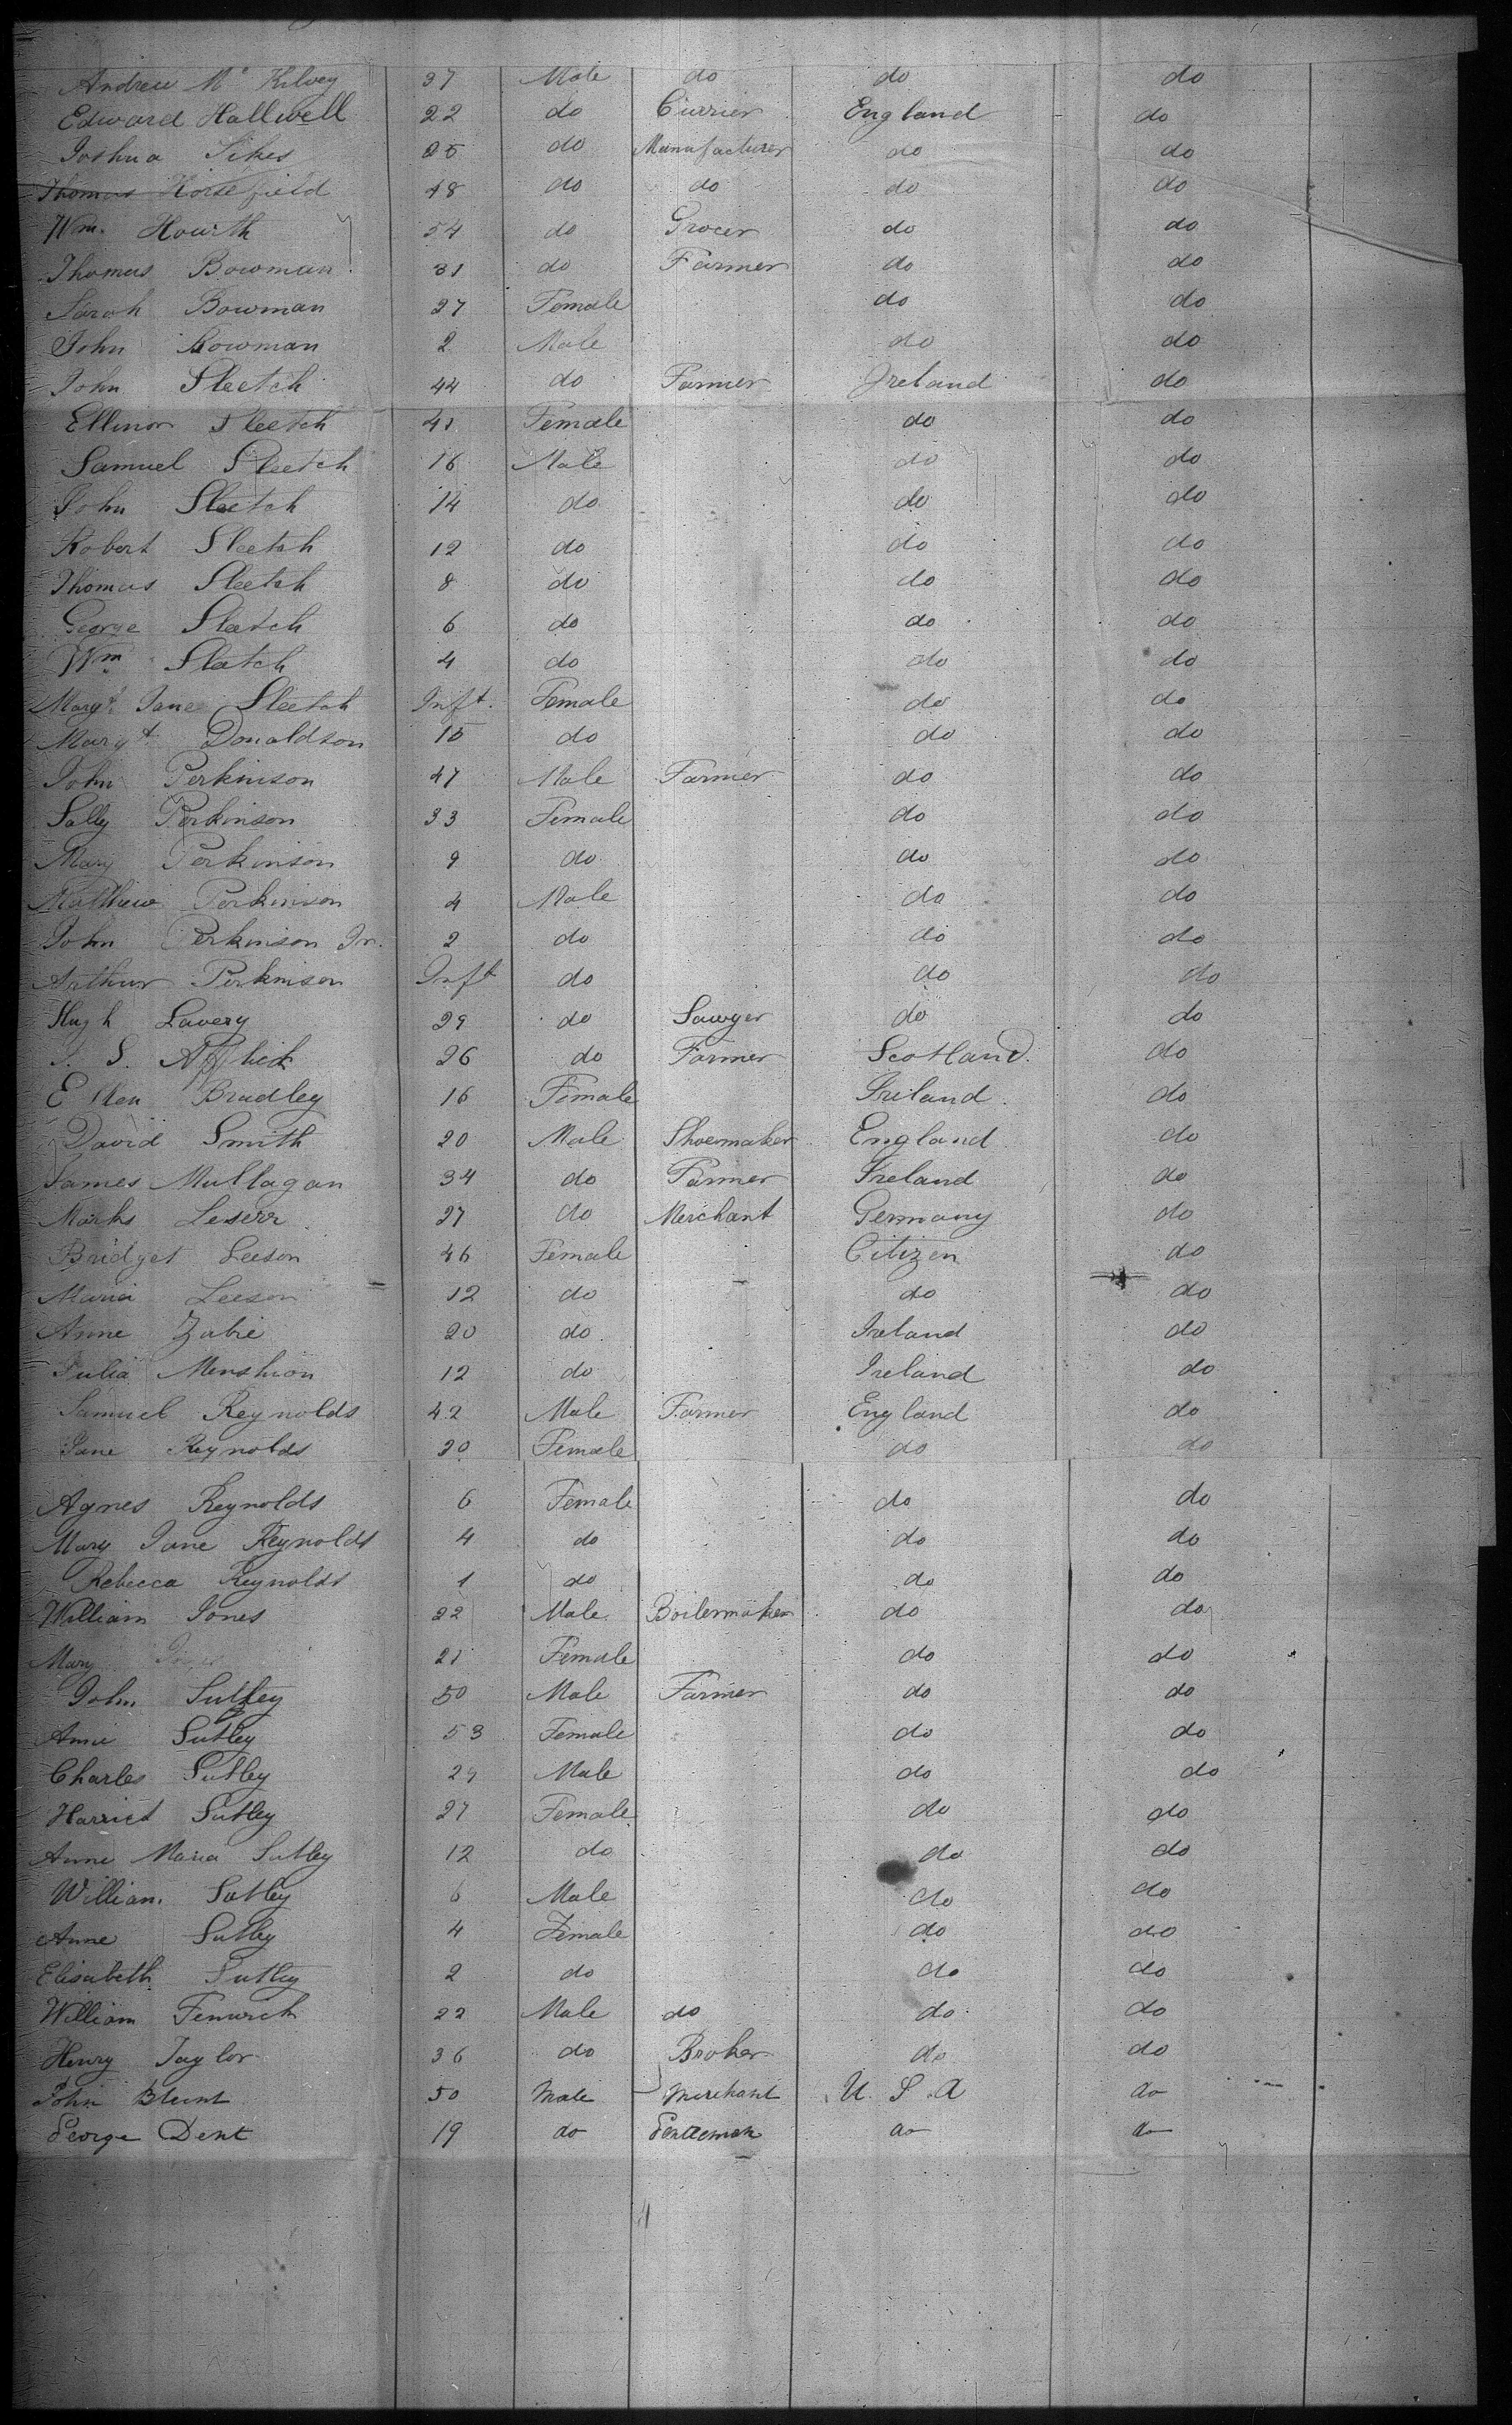 Andrew Mc Kilvey 37 Male do do do
Edward Halliwell 22 do Currier England do
Joshua Sikes 25 do Manufacturer do do
Thomas Horsefield 48 do do do do
Wm. Howrth 54 do Grocer do do
Thomas Bowman 31 do Farmer do do
Sarah Bowman 27 Female do do
John Bowman 2 Male do do
John Sleetch 44 do Farmer Ireland do
Ellinor Sleetch 41 Female do do
Samuel Sleetch 16 Male do do
John Sleetch 14 do do do
Robert Sleetch 12 do do do
Thomas Sleetch 8 do do do
George Sleetch 6 do do do
Wm Sleetch 4 do do do
Margt Jane Sleetch Inft. Female do do
Margt Donaldson 15 do do do
John Perkinson 47 Male Farmer do do
Sally Perkinson 33 Female do do
Mary Perkinson 9 do do do
Matthew Perkinson 4 Male do do
John Perkinson Jn. 2 do do do
Arthur Perkinson Inft do do do
Hugh Lavery 29 do Sawyer do do
S. Affleck 26 do Farmer Scotland. do
Ellen Bradley 16 Female Ireland. do
David Smith 20 Male Shoemaker England do
James Mullagan 34 do Farmer Ireland do
Marks 27 do Merchant Germany do
Bridget Leeson 46 Female Citizen do
Maria Leeson 12 do do do
Anne Zabie 20 do Ireland do
Julia Menshion 12 do Ireland do
Samuel Reynolds 42 Male Farmer England do
Jane Reynolds 30 Female do do
Agnes Reynolds 6 Female do do
Mary Jane Reynolds 4 do do do
Rebecca Reynolds 1 do do do
William Jones 22 Male Boilermaker do do
Mary Jones 21 Female do do
John Sutley 50 Male Farmer do do
Anne Sutley 53 Female do do
Charles Sutley 29 Male do do
Harriet Sutley 27 Female do do
Anne Maria Sutley 12 do do do
William. Sutley 6 Male do do
Anne Sutley 4 Female do do
Elisabeth Sutley 2 do do do
William Fenwick 22 Male do do do
Henry Taylor 36 do Broker do do
John Blunt 50 Male Merchant U. S. A do
George Dent 19 do Gentleman do do